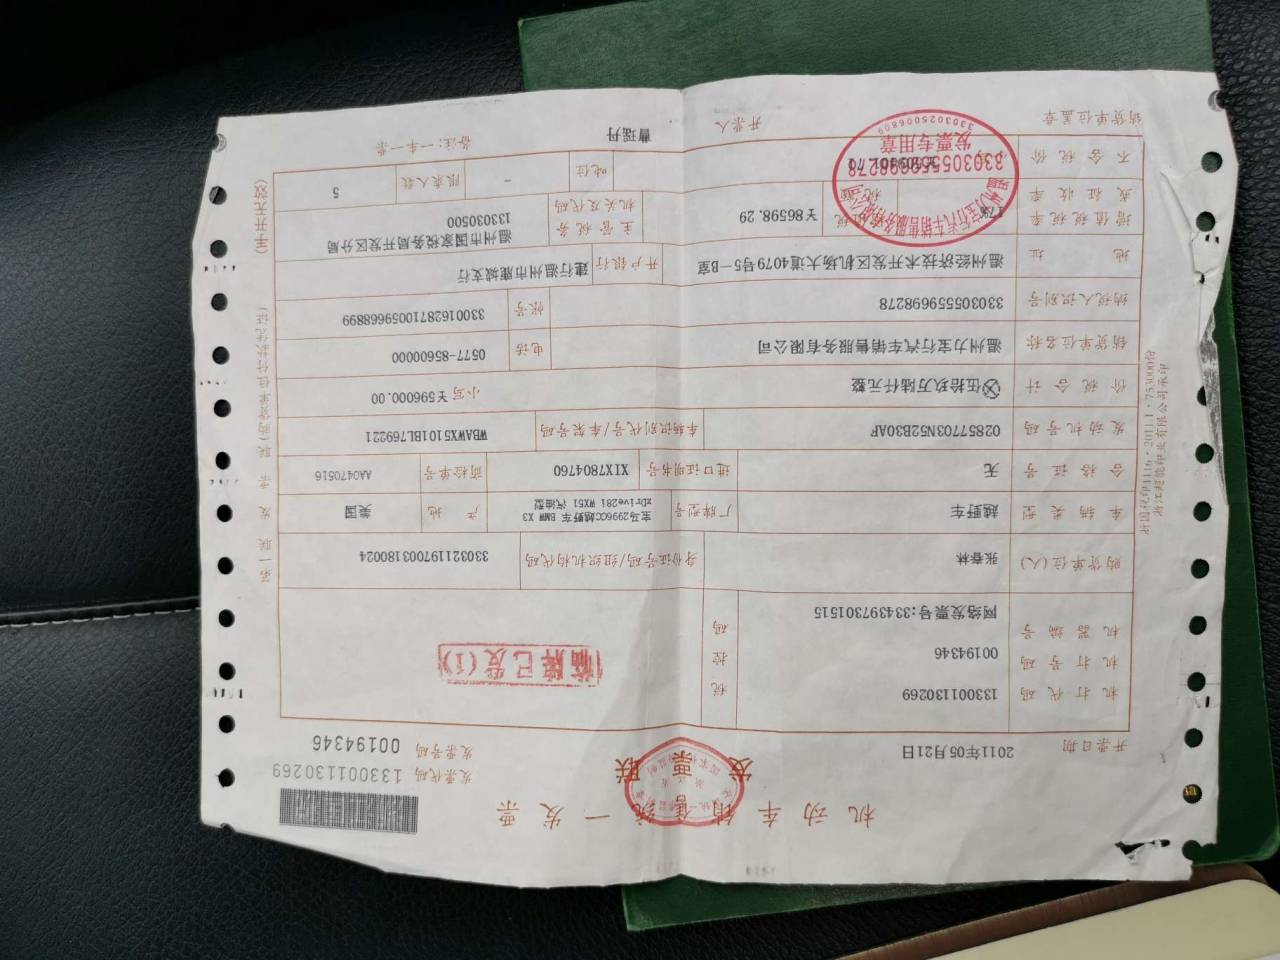 机动车销售统一发票
发票联
发票代码 133001130269
发票号码 00194346
开票日期 2011年05月21日
机打代码 133001130269
机打号码 00194346
机器编号 网络发票号:334397301515
税控码
临牌已发(1)
购货单位(人) 张春林 身份证号码/组织机构代码 330321197003180024
车辆类型 越野车 厂牌型号 宝马2996CC越野车 BMW X3 xDrive28i WX51 汽油型 产地 美国
合格证号 无 进口证明书号 XIX7804760 商检单号 AA0470516
发动机号码 02857703N52B30AF 车辆识别代号/车架号码 WBAWX5101BL769221
价税合计 ⊗伍拾玖万陆仟元整 小写 ¥596000.00
销货单位名称 温州力宝行汽车销售服务有限公司 电话 0577-85600000
纳税人识别号 330305559698278 帐号 33001628710059668899
地址 温州经济技术开发区机场大道4079号5-B室 开户银行 建行温州市鹿城支行
增值税税率或征收率 17% ¥86598.29 主管税务机关及代码 温州市国家税务局开发区分局 133030500
不含税价 吨位 - 限乘人数 5
销货单位盖章 开票人 曹瑶丹 备注:一车一票
温州力宝行汽车销售服务有限公司
330305559698278
发票专用章
3303025006809
第一联 发票联(购货单位付款凭证)
(手开无效)